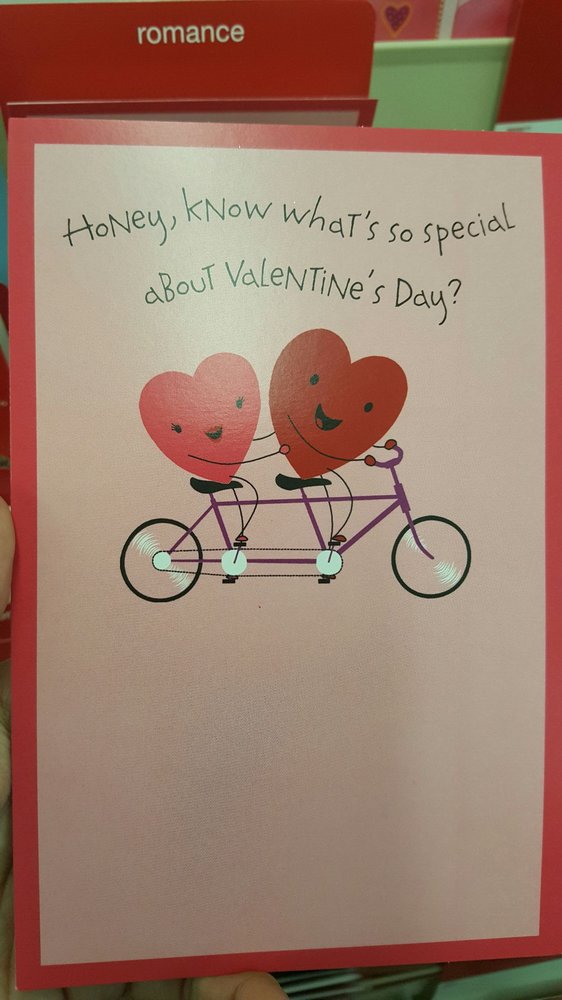 romance
Honey, know what's so special
about Valentine's Day?